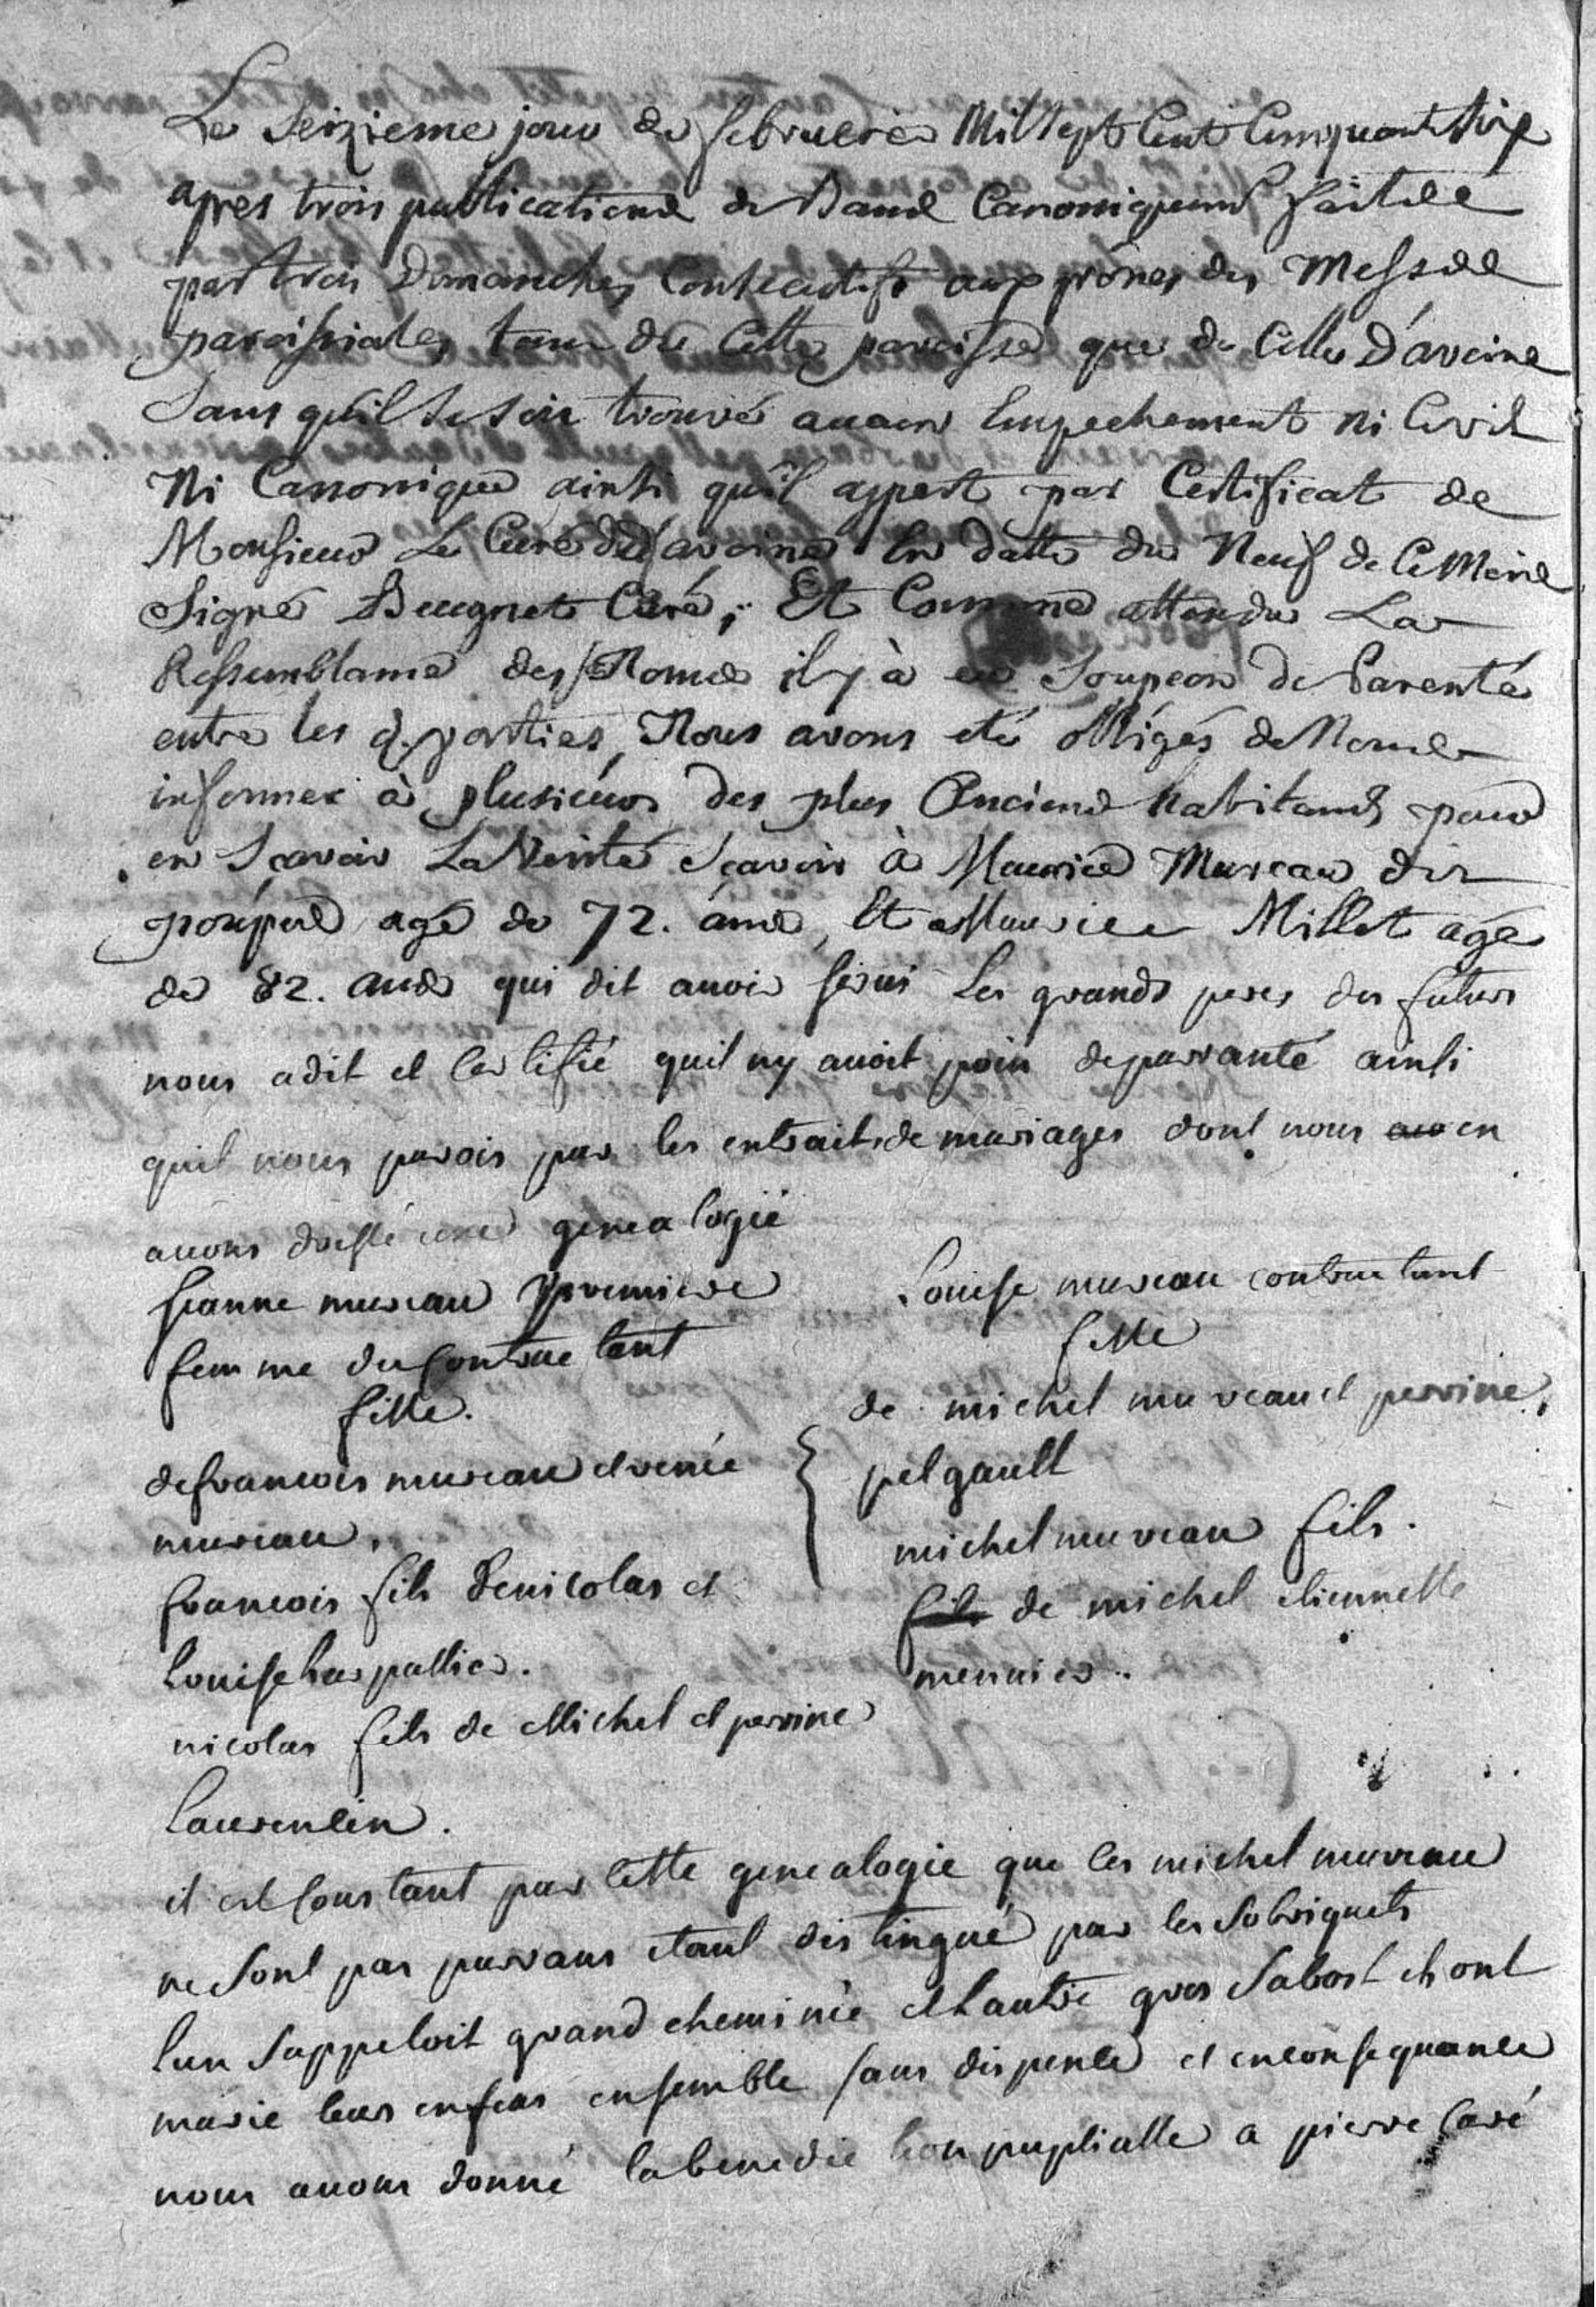 Le Seizieme jour de febvrier Mil Sept Cent Cinquante Six
apres trois publications de Bans Canoniquem.t faittes
par trois Dimanches Consecutifs aux prônes des Messes
paroissiales tant de Cette paroisse que de Celle D'avoine
Sans qu'il se soit trouvé aucun Empechement ni Civil
Ni Canonique ainsi qu'il appert par Certificat de
Monsieur Le Curé d'avoine En datte du Neuf de Ce Mois
Signé Beugnet Curé, Et Comme attendu La
Ressemblance des Noms il y à eu Soupçon de Parenté
entre les d. parties, Nous avons eté obligés de Nous
informer à plusieurs des plus Anciens habitants pour
en Scavoir La Verité Scavoir à Maurice Mureau dit
poupué agé de 72. ans, Et a Maurice Millet agé
de 82. ans qui dit auoir serui Les grands peres des futurs
nous a dit et certifié quil ny auoit poin de parranté ainsi
quil nous parois par les extraits de mariages dont nous en
auons dressé une genealogié
Jeanne mureau premiere
femme du Contractant
fille.
de francois mureau et renée
mureau.
francois fils de nicolas et
Louise harpallier.
nicolas fils de Michel et perrine
Laurentin.
Louise mureau contractant
fille
de michel mureau et perrine
pelgault
michel mureau fils.
fils de michel etiennette
menuier.
il est Constant par Cette genealogie que les michel mureau
ne sont pas parrans etant distingué par les Sobriquets
lun Sappeloit grand cheminée et Lautre gros Sabost et ont
marie leurs enfens ensemble sans dispence et en consequance
nous auons donné la benediction nuptialle a pierre Caré